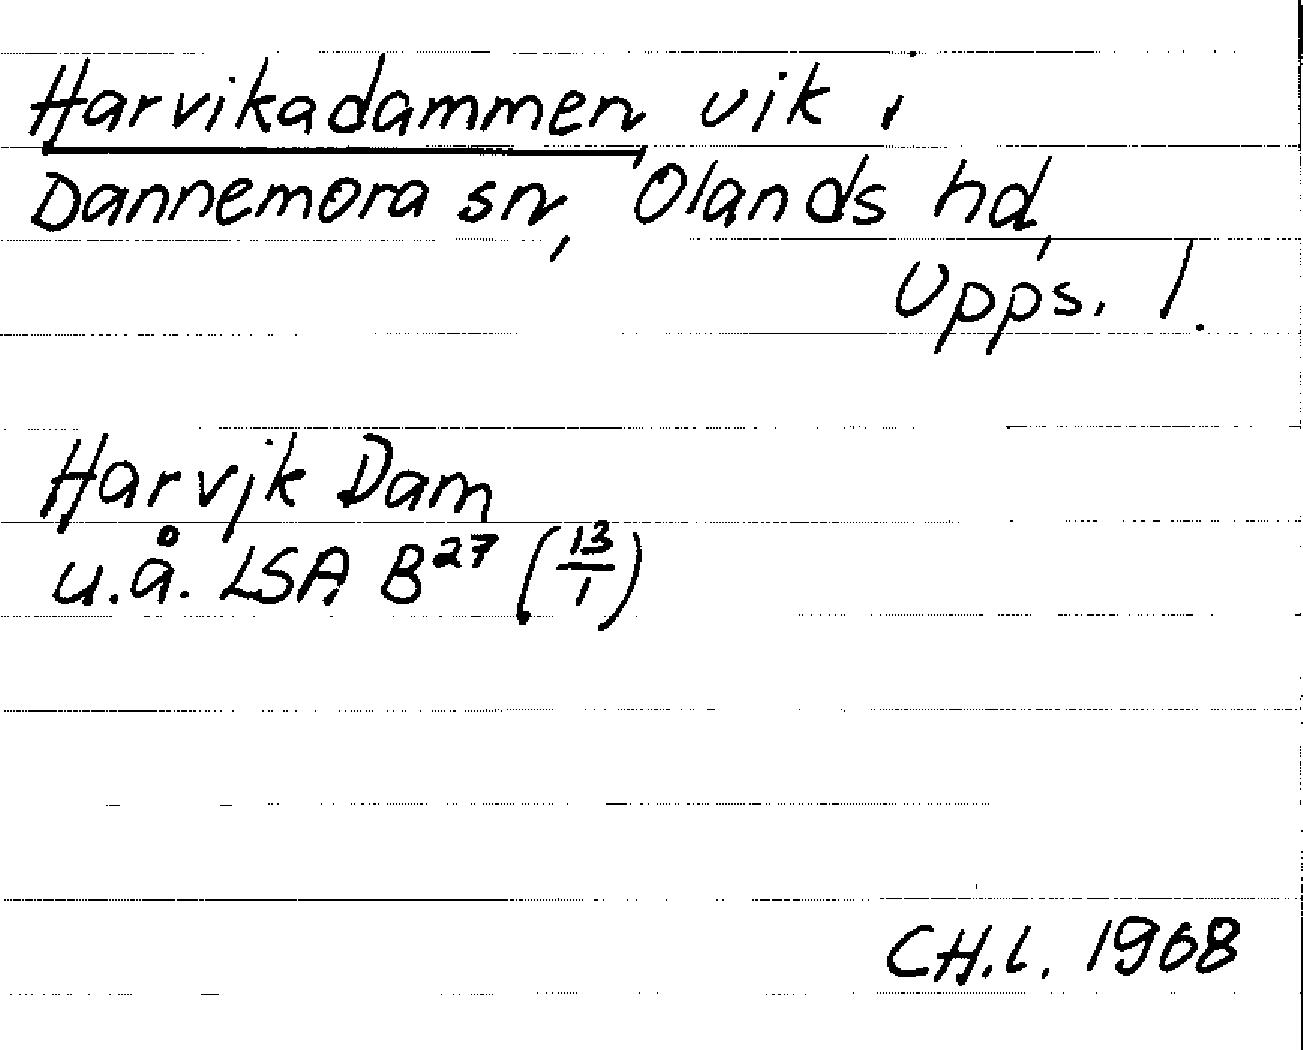 Harvikadammen vik i
Dannemora sn, Olands hd,
Upps. l.
Harvik Dam
u.å. LSA B²⁷ (13/1)
CH.L. 1968